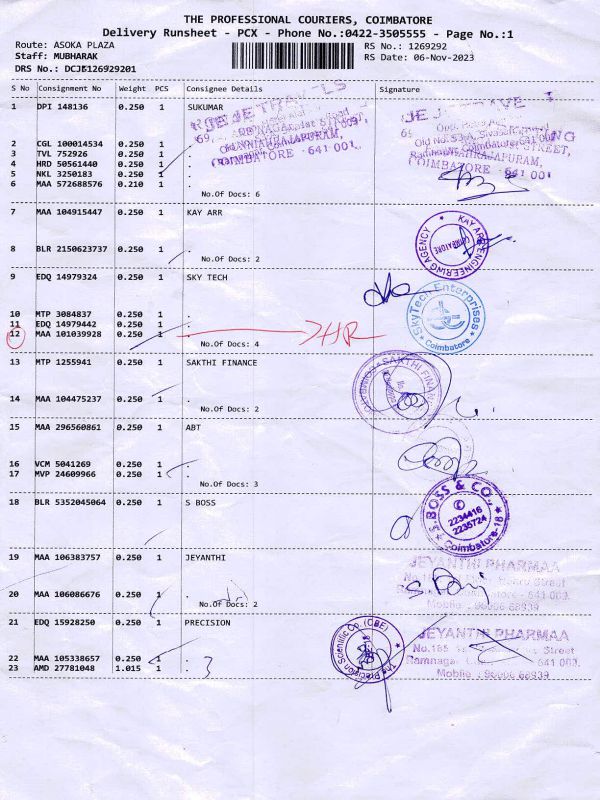 THE PROFESSIONAL COURIERS, COIMBATORE
Delivery Runsheet - PCX - Phone No.:0422-3505555 - Page No.:1
Route: ASOKA PLAZA
RS No.: 1269292
Staff: MUBHARAK
RS Date: 06-Nov-2023
DRS No.: DCJE126929201
S No Consignment No Weight PCS Consignee Details Signature
1 DPI 148136 0.250 1 SUKUMAR
2 CGL 100014534 0.250 1 .
3 TVL 752926 0.250 1 .
4 HRD 50561440 0.250 1 .
5 NKL 3250183 0.250 1 .
6 MAA 572688576 0.210 1 .
No.Of Docs: 6
JE JE TRAVELS
COIMBATORE 641 001.
JE JE TRAVE
COIMBATORE 641 001
7 MAA 104915447 0.250 1 KAY ARR
8 BLR 2150623737 0.250 1 .
No.Of Docs: 2
KAY ARR ENGINEERING AGENCY
COIMBATORE
9 EDQ 14979324 0.250 1 SKY TECH
10 MTP 3084837 0.250 1 .
11 EDQ 14979442 0.250 1 .
12 MAA 101039928 0.250 1 .
No.Of Docs: 4
SkyTech Enterprises
Coimbatore
13 MTP 1255941 0.250 1 SAKTHI FINANCE
14 MAA 104475237 0.250 1 .
No.Of Docs: 2
SAKTHI FINANC
15 MAA 296560861 0.250 1 ABT
16 VCM 5041269 0.250 1 .
17 MVP 24609966 0.250 1 .
No.Of Docs: 3
18 BLR 5352045064 0.250 1 S BOSS
S. BOSS & CO.,
2234416
2235724
Coimbatore-18
19 MAA 106383757 0.250 1 JEYANTHI
20 MAA 106086676 0.250 1 .
No.Of Docs: 2
JEYANTHI PHARMAA
Street
Mobile : 90006 68939
21 EDQ 15928250 0.250 1 PRECISION
22 MAA 105338657 0.250 1 .
23 AMD 27781048 1.015 1 .
3
The Precision Scientific Co. (CBE)
JEYANTHI PHARMAA
No.185
Street
Ramnagar
641 009.
Mobile : 90006 68939